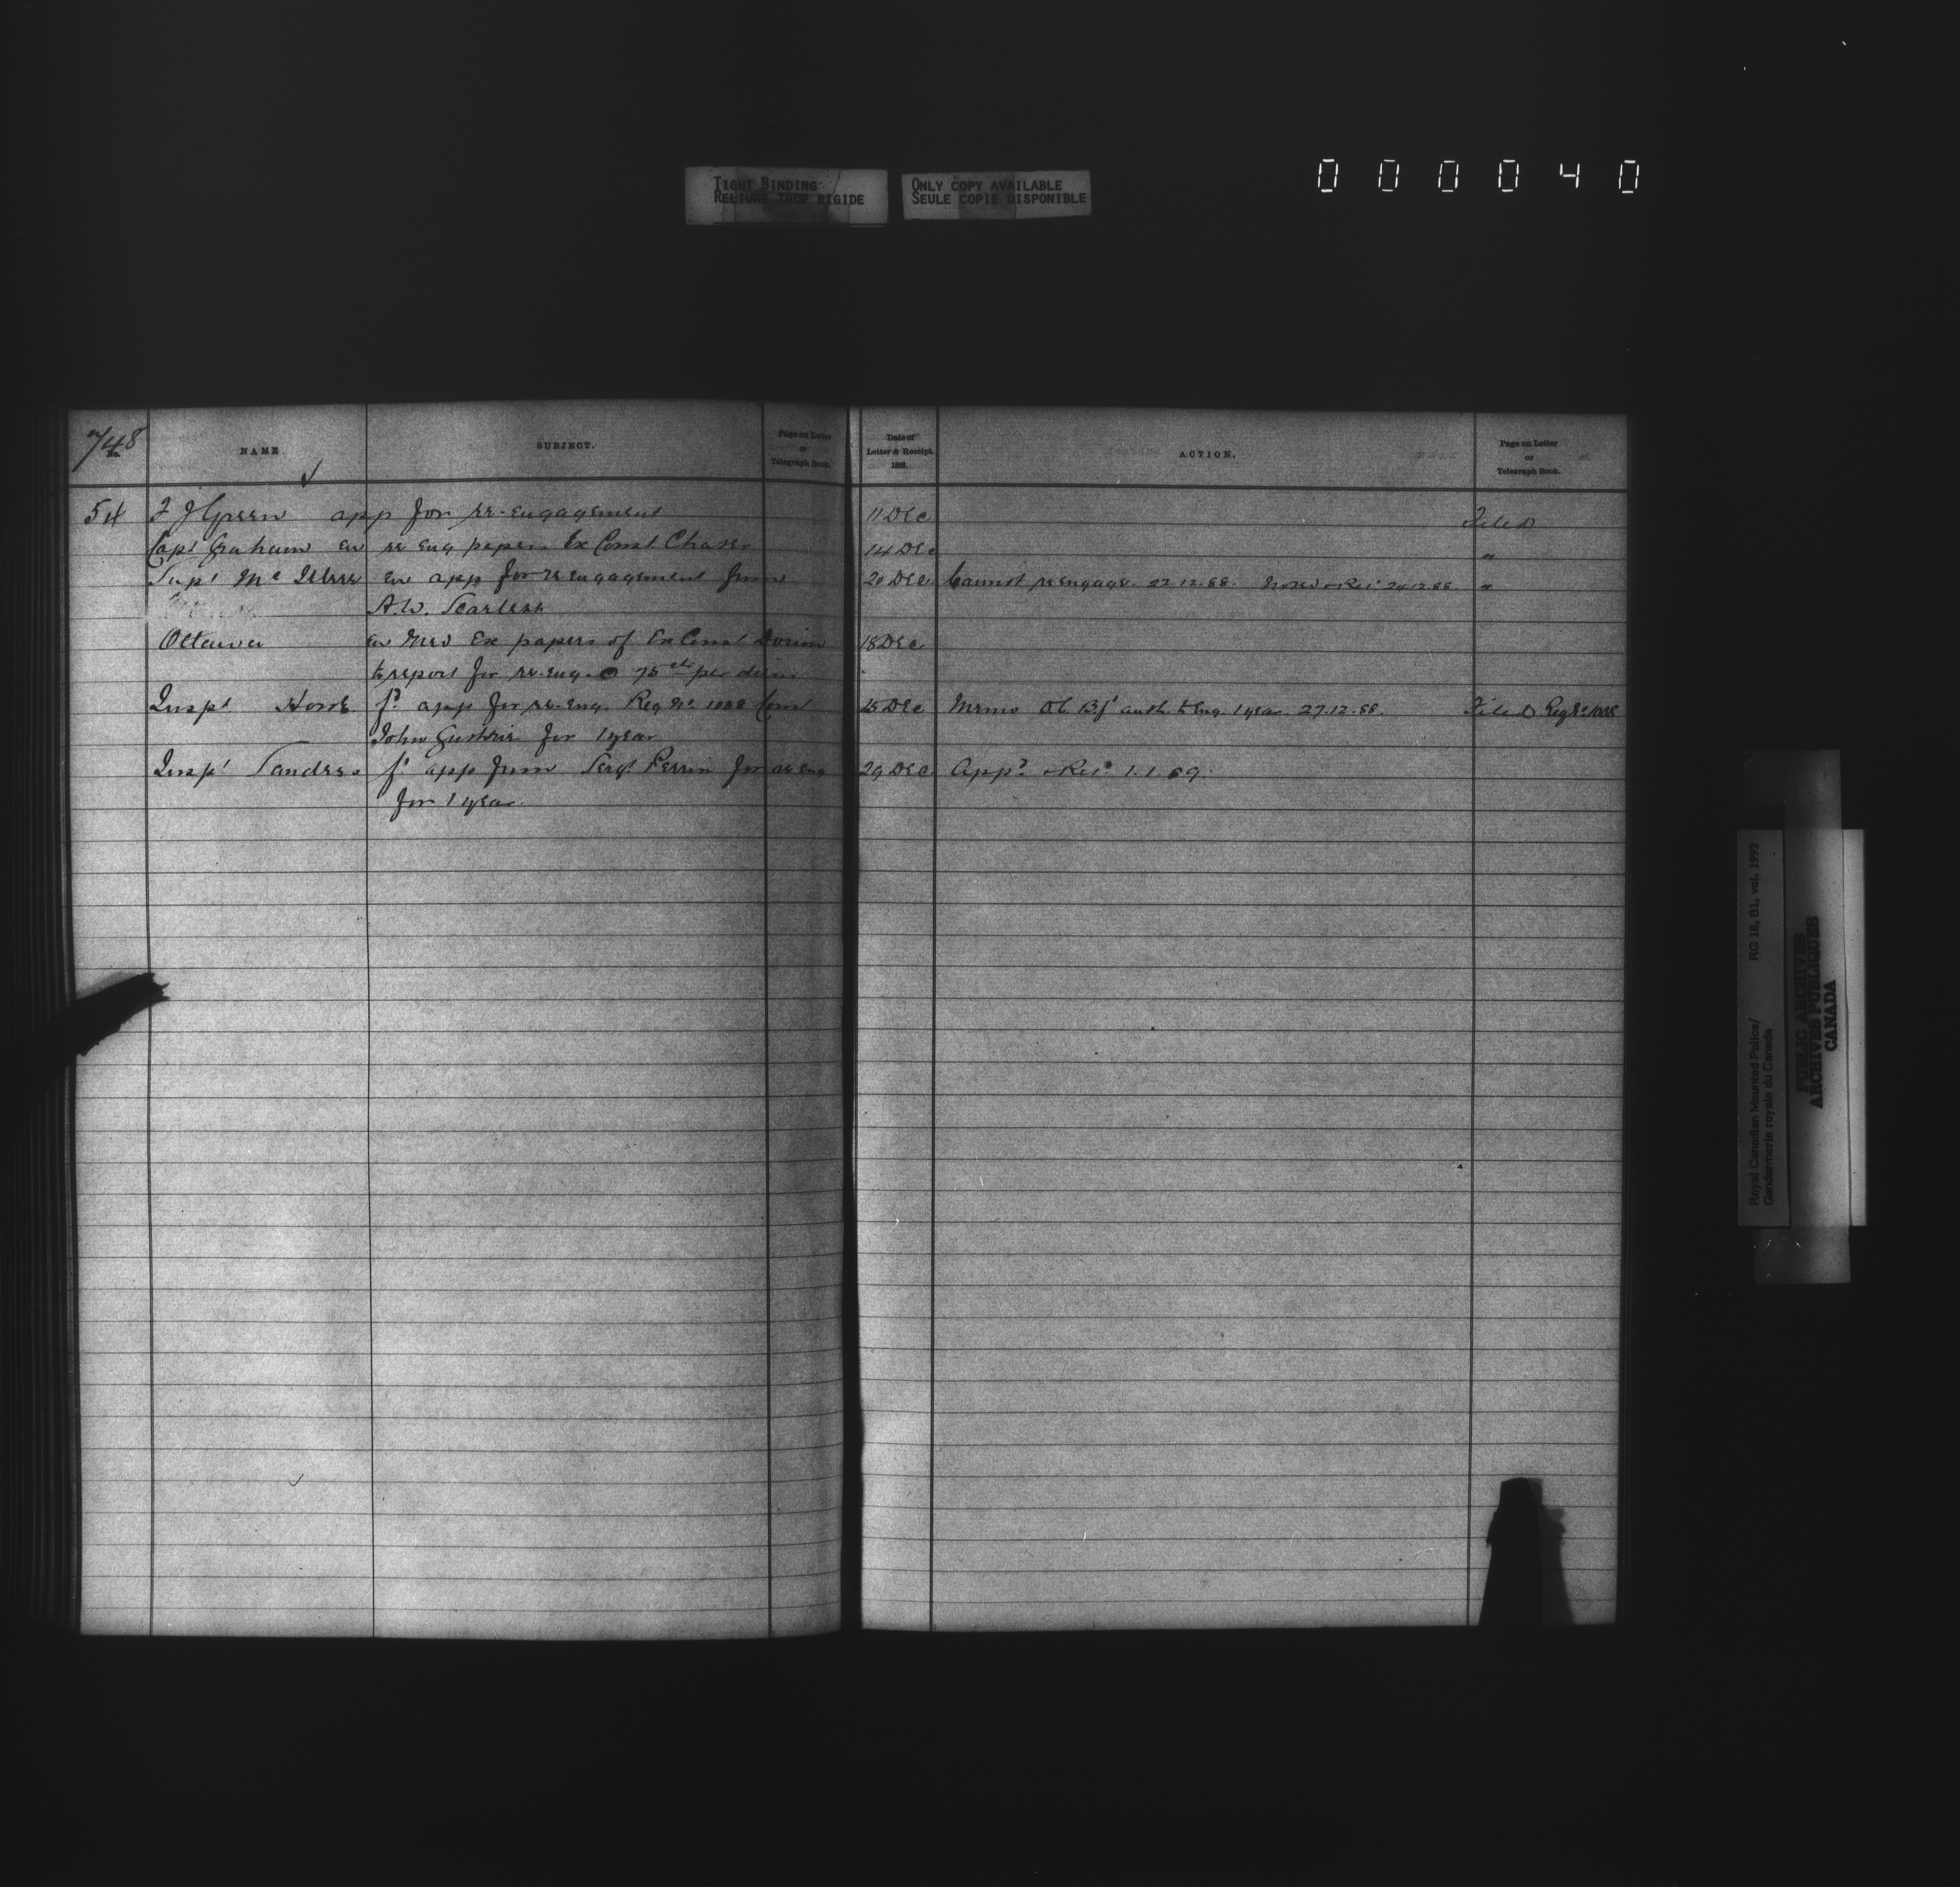 TIGHT BINDING
RELIURE TROP RIGIDE
ONLY COPY AVAILABLE
SEULE COPIE DISPONIBLE
000040
748
No.
NAME
SUBJECT.
Page on Letter
or
Telegraph Book.
Date of
Letter & Receipt.
1888.
ACTION.
Page on Letter
or
Telegraph Book.
54 F J Green app for re-engagement 11 Dec Filed
Capt Graham en re eng papers Ex Const Chaser 14 Dec "
Supt Mc en app for re engagement from 20 Dec Cannot re engage. 22.12.88. Noted & Ret 24.12.88. "
A.W.
Ottawa en Med Ex papers of Ex Const 18 Dec
to report for re-eng. @ 75 cts per diem
Inspt Howe fd app for re-eng. Reg No. 1008 Const 25 Dec Memo Of. Bft auth. to eng. 1 year. 27.12.88. Filed Reg No 1008
John Guthrie for 1 year
Inspt Sanders fd app from Sergt Perrin for re eng 29 Dec Appd & Retd 1.1.89.
for 1 year.
Royal Canadian Mounted Police/ RG 18, B1, vol. 1992
Gendarmerie royale du Canada
PUBLIC ARCHIVES
ARCHIVES PUBLIQUES
CANADA